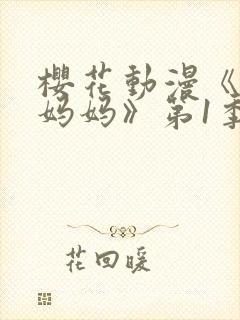 櫻花動漫《
妈妈》第1季
花回暖